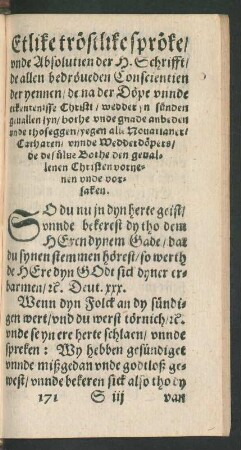 Etlike tröstlike spröke/
vnde Absolutien der H. Schrifft/
de allen bedröueden Conscientien
der yennen/ de na der Döpe vnnde
erkentenisse Christi/ wedder yn sünden
geuallen syn/ bothe vnde gnade anbeden
vnde thoseggen/ yegen alle Nouatianer/
Catharen/ vnnde Wedderdöpers/
de de sülue Bothe den geual-
lenen Christen vornē-
nen vnde vor-
saken.
SO du nu jn dyn herte geist/
vnnde bekerest dy tho dem
HEren dynem Gade/ dat
du synen stemmen hörest/ so werth
de HEre dyn GOdt sick dyner er-
barmen/ ⁊c. Deut. xxx.
Wenn dyn Folck an dy sündi-
gen wert/ vnd du werst törnich/ ⁊c.
vnde se yn ere herte schlaen/ vnnde
spreken: Wy hebben gesündiget
vnnde mißgedan vnde godtloß ge-
west/ vnnde bekeren sick also tho dy
171 S iij van